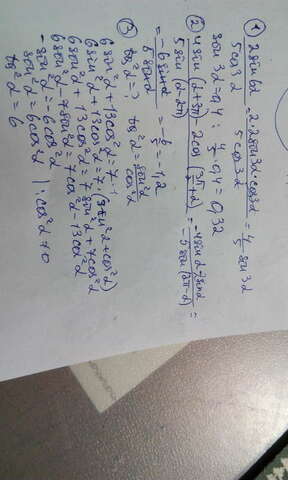 ① 2sin6α / 5cos3α = 2·2sin3α·cos3α / 5cos3α = 4/5 sin3α
sin3α=0,4 ; 4/5·0,4=0,32
② 4sin(α-3π)-2cos(3π/2+α) / 5sin(α-2π) = -4sinα-2sinα / -5sin(2π-α) =
= -6sinα / 5sinα = -6/5 = -1,2
③ tg²α=? tg²α= sin²α / cos²α
6sin²α+13cos²α=7·1
6sin²α+13cos²α=7·(sin²α+cos²α)
6sin²α+13cos²α=7sin²α+7cos²α
6sin²α-7sin²α=7cos²α-13cos²α
-sin²α=-6cos²α
sin²α=6cos²α |:cos²α≠0
tg²α=6